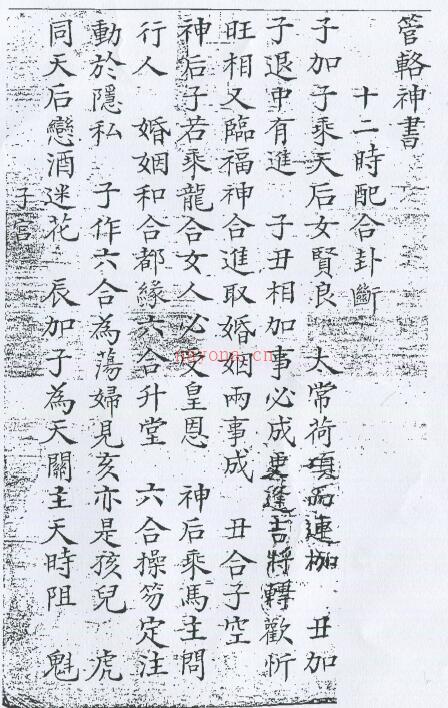 管輅神書
十二時配合卦斷
子加子乘天后女賢良　太常荷項而連枷　丑加
子退中有進　子丑相加事必成更逢吉將轉歡忻
旺相又臨福神合進取婚姻兩事成　丑合子空
神后子若乘龍合女人必受皇恩　神后乘馬主問
行人　婚姻和合都緣六合升堂　六合操笏定注
動於隱私　子作六合為蕩婦見亥亦是孩兒　虎
同天后戀酒迷花　辰加子為天關主天時阻　魁
子宮
nayona.cn